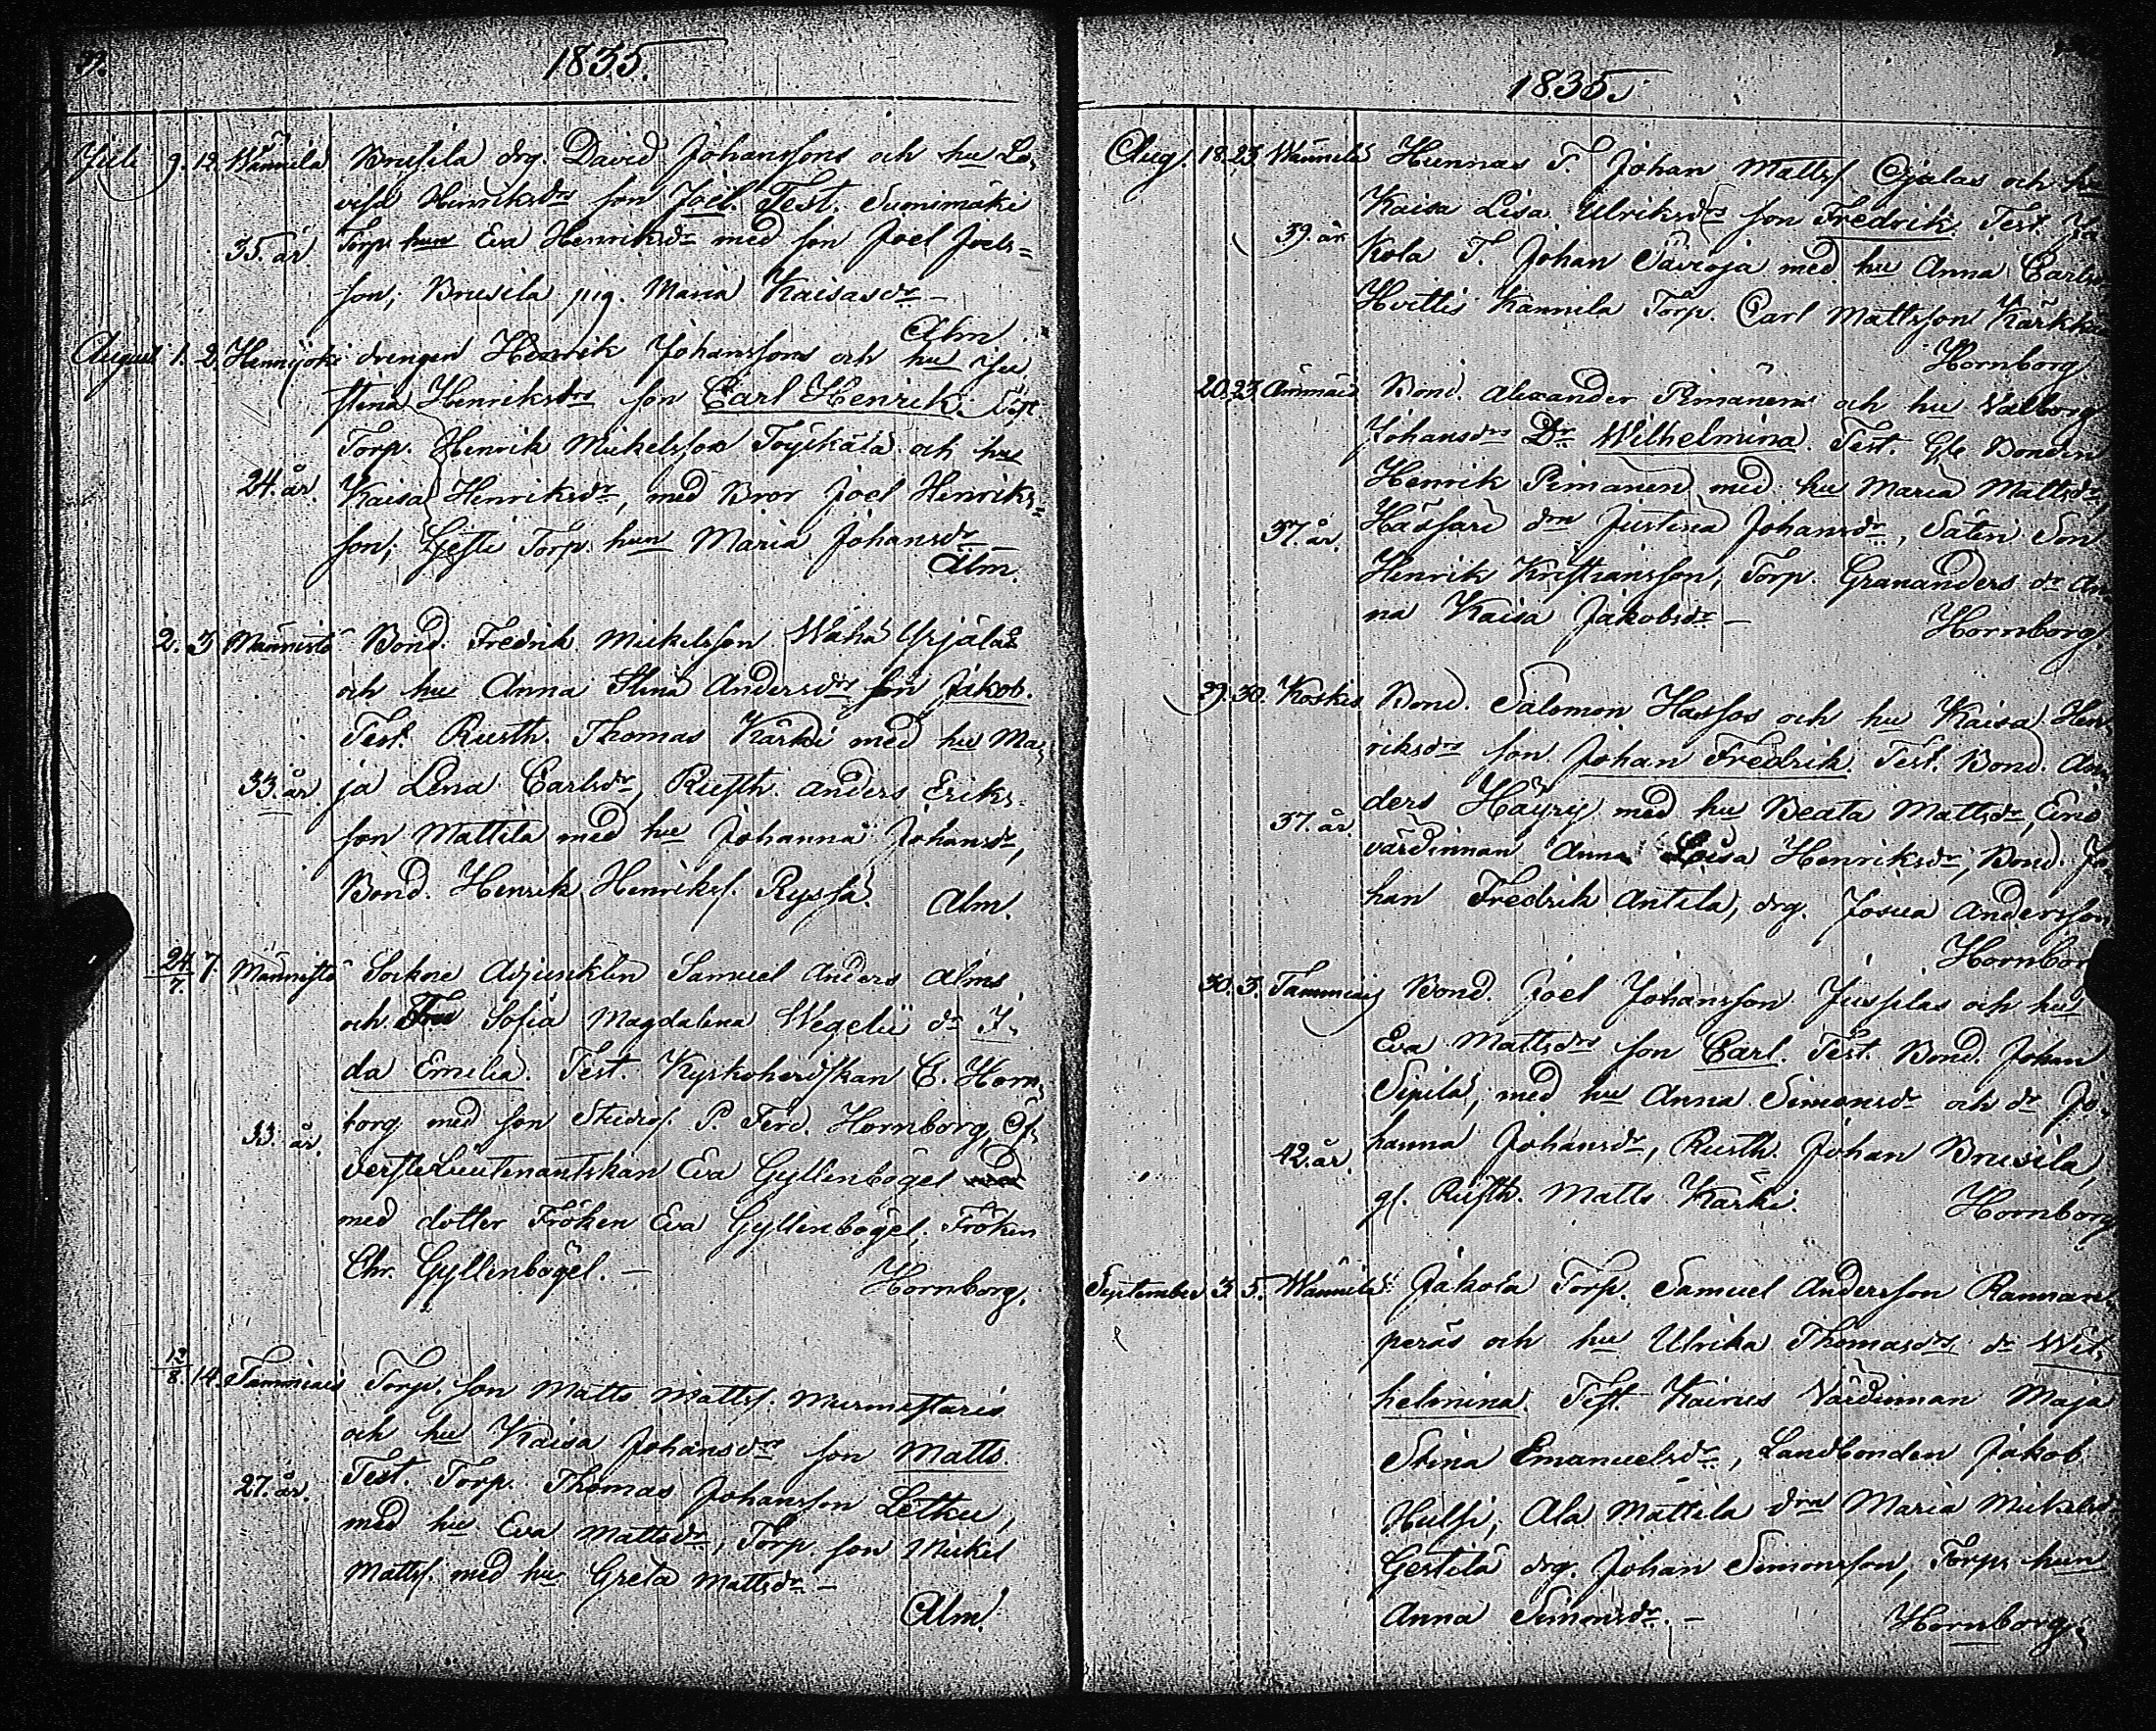 1835.
Juli 9. 12. Wännilä Brusila drg. David Johanssons och hu Lo-
visa Henriksdrs son Joel. Test. Suonimäki
35. år. Torp. hun Eva Henriksdr med son Joel Joels-
son, Brusila pig. Maria Kaisasdr –
Alm
August 1. 2. Hennijoki drengen Henrik Johanssons och hu Ju
stina Henriksdrs son Carl Henrik. Test
Torp. Henrik Mickelsson Töyskälä och hu
24. år. Kaisa Henriksdr, med Bror Joel Henriks-
son, Torp. hun Maria Johansdr
Alm.
2. 3 Männistö Bond. Fredrik Mickelsson Wähä Yrjäläs
och hu Anna Stina Andersdrs son Jakob.
Test. Rusth. Thomas Kärki med hu Ma-
33. år. ja Lena Carlsdr, Rusth. Anders Eriks-
son Mattila med hu Johanna Johansdr,
Bond. Henrik Henriks. Ryssä. Alm.
24/7. 7. Männistö Sockne Adjunkten Samuel Anders Alms
och Fru Sofia Magdalena Wegelii dr I-
da Emilia. Test. Kyrkoherdskan C. Horn-
33. år. borg med son Studios. P. Ferd. Hornborg, Öf-
versteLieutenantskan Eva Gyllenbögel
med dotter Fröken Eva Gyllenbögel, Fröken
Chr. Gyllenbögel. – Hornborg.
12/8. 14. Tammiais Torp. son Matts Matts. Murmestaris
och hu Kaisa Johansdrs son Matts.
27. år. Test. Torp. Thomas Johansson Letku,
med hu Eva Mattsdr, Torp son Mickel
Matts. med hu Greta Mattsdr –
Alm.
1835.
Aug. 18. 23. Wännilä Hunnas T. Johan Matts. Ojalas och hu
39. år. Kaisa Lisa Ulriksdrs son Fredrik Test. Ja
kola T. Johan Säwioja med hu Anna Carlsdr
Hvittis Kännilä Torp. Carl Mattsson
Hornborg
20. 23. Ämmäis Bond. Alexander Pimänens och hu Walborg
Johansdrs Dr Wilhelmina. Test. Gle Bonden
Henrik Pimänen med hu Maria Mattsdr,
37. år. Justina Johansdr, Säteri Son
Henrik Kristiansson, Torp. Grananders dr An
na Kaisa Jakobsdr – Hornborg.
29. 30. Koskis Bond. Salomon Hassos och hu Kaisa Hen
riksdrs son Johan Fredrik. Test. Bond. An
37. år. ders Häyry med hu Beata Mattsdr,
värdinnan Anna Lisa Henriksdr, Bond. Jo
han Fredrik Antila, drg. Josua Andersson
Hornborg
30. 3. Tammiais Bond. Joel Johansson Jussilas och hu
Eva Mattsdrs son Carl. Test. Bond. Johan
Sipilä, med hu Anna Simonsdr och dr Jo-
42. år. hanna Johansdr, Rusth. Johan Brusila,
gl. Rusth. Matts Kärki. Hornborg
September 3. 5. Wännilä Jakola Torp. Samuel Andersson Rannan-
peräs och hu Ulrika Thomasdrs dr Wil-
helmina. Test. Kairus Värdinnan Maja
Stina Emanuelsdr, Landbonden Jakob
Hulsi, Ala Mattila drn Maria Mickelsdr
Gestilä drg. Johan Simonsson, Torp. hun
Anna Simonsdr. – Hornborg.